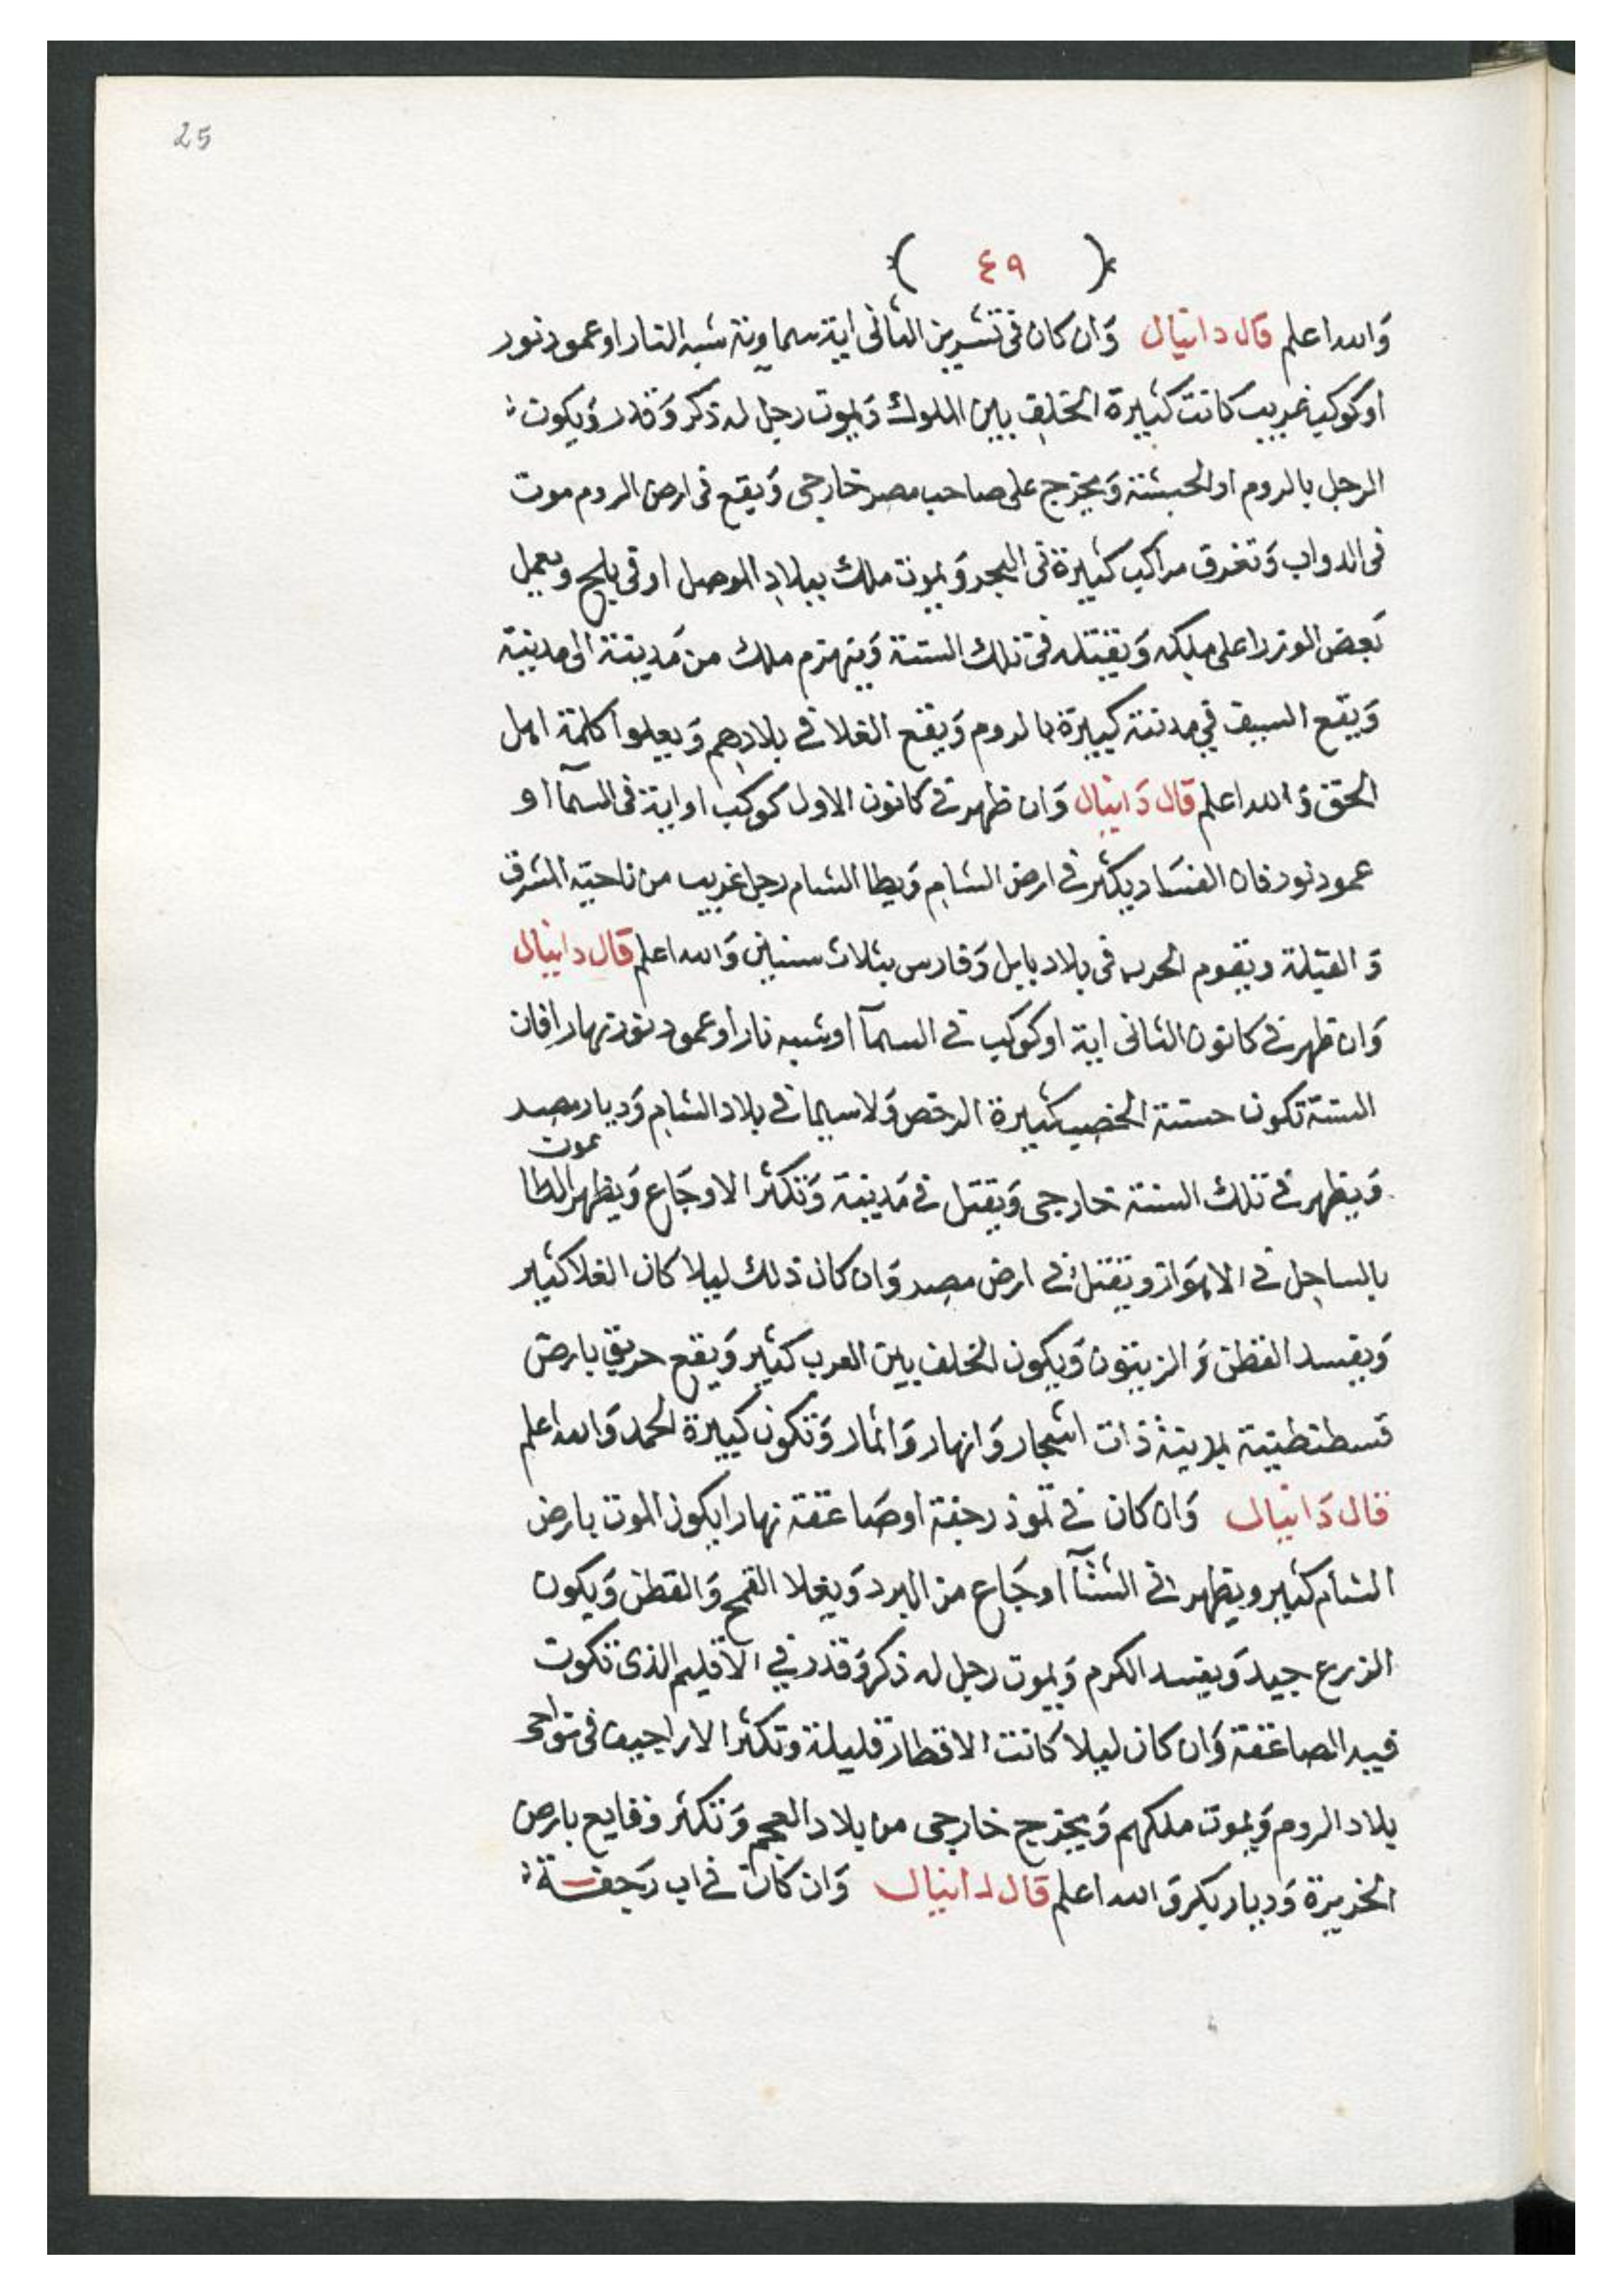 25
( ٤٩ )
والله اعلم قال دانيال وان كان في تشرين الثاني اية سماوية شبه النار او عمود نور
او كوكب غريب كانت كثيرة الخلف بين الملوك ويموت رجل له ذكر وقدر ويكون
الرجل بالروم او الحبشة ويخرج على صاحب مصر خارجي ويقع في ارض الروم موت
في الدواب وتغرق مراكب كثيرة في البحر ويموت ملك ببلاد الموصل او في بلخ ويعمل
بعض الوزرا على ملكه ويقتله في تلك السنة وينهزم ملك من مدينة الى مدينة
ويقع السيف في مدينة كبيرة بالروم ويقع الغلا في بلادهم ويعلوا كلمة اهل
الحق والله اعلم قال دانيال وان ظهر في كانون الاول كوكب او اية في السمآ او
عمود نور فان الفساد يكثر في ارض الشام ويطا الشام رجل غريب من ناحية المشرق
و القبلة ويقوم الحرب في بلاد بابل وفارس بثلاث سنين والله اعلم قال دانيال
وان ظهر في كانون الثاني اية او كوكب في السمآ او شبه نار او عمود نور نهارا فان
السنة تكون حسنة الخصب كثيرة الرخص ولا سيما في بلاد الشام وديار مصر
ويظهر في تلك السنة خارجي ويقتل في مدينة وتكثر الاوجاع ويظهر موت الطا
بالساحل في الاهواز ويقتل في ارض مصر وان كان ذلك ليلا كان الغلا كثير
ويفسد القطن و الزيتون ويكون الخلف بين العرب كثير ويقع حريق بارض
قسطنطينية بمدينة ذات اشجار وانهار واثمار وتكون كبيرة الحمد والله اعلم
قال دانيال وان كان في تموز رجفة او صاعقة نهارا يكون الموت بارض
الشام كثير ويظهر في الشتآ اوجاع من البرد ويغلا القمح والقطن ويكون
الزرع جيد ويفسد الكرم ويموت رجل له ذكر وقدر في الاقليم الذي تكون
فيه الصاعقة وان كان ليلا كانت الامطار قليلة وتكثر الاراجيف في نواحي
بلاد الروم ويموت ملكهم ويخرج خارجي من بلاد العجم وتكثر وقايع بارض
الجزيرة وديار بكر والله اعلم قال دانيال وان كان في اب رجفة